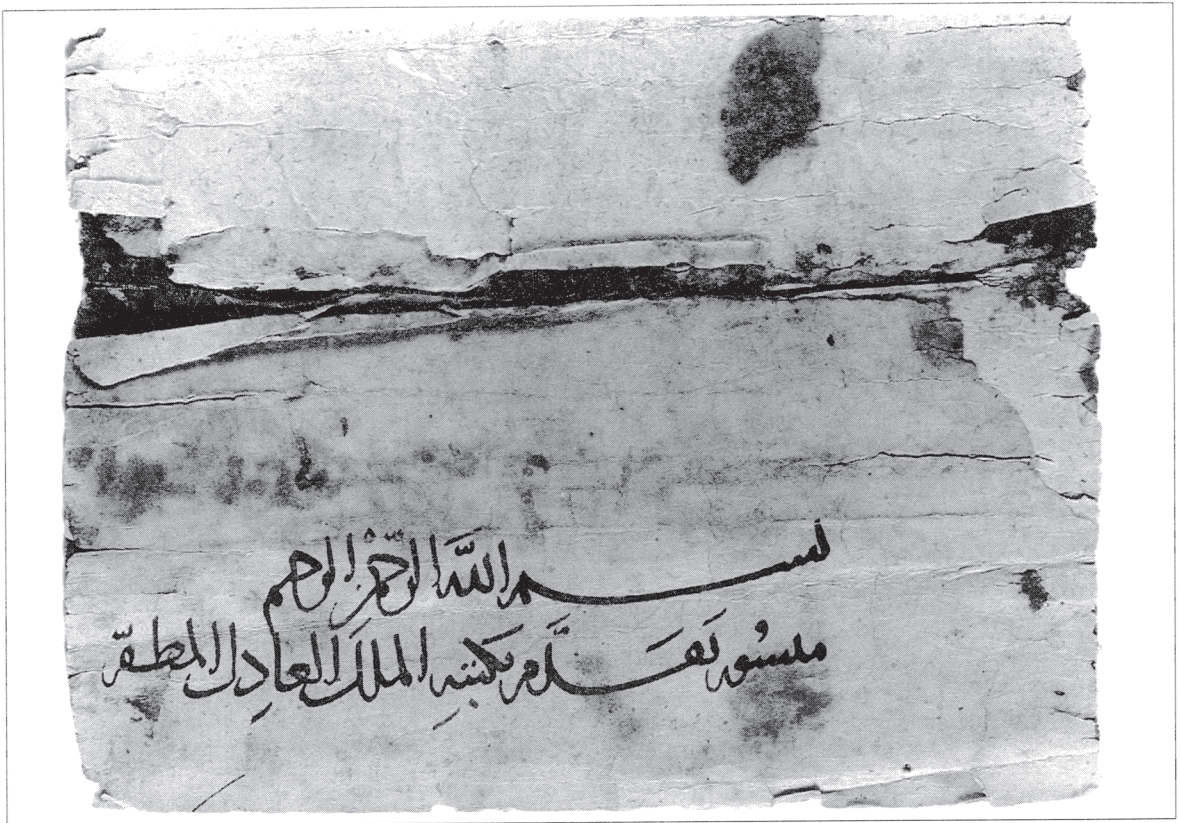 بسم الله الرّحمٰن الرحيم
منشور تقدّم بكتبه الملك العادل المظفّر